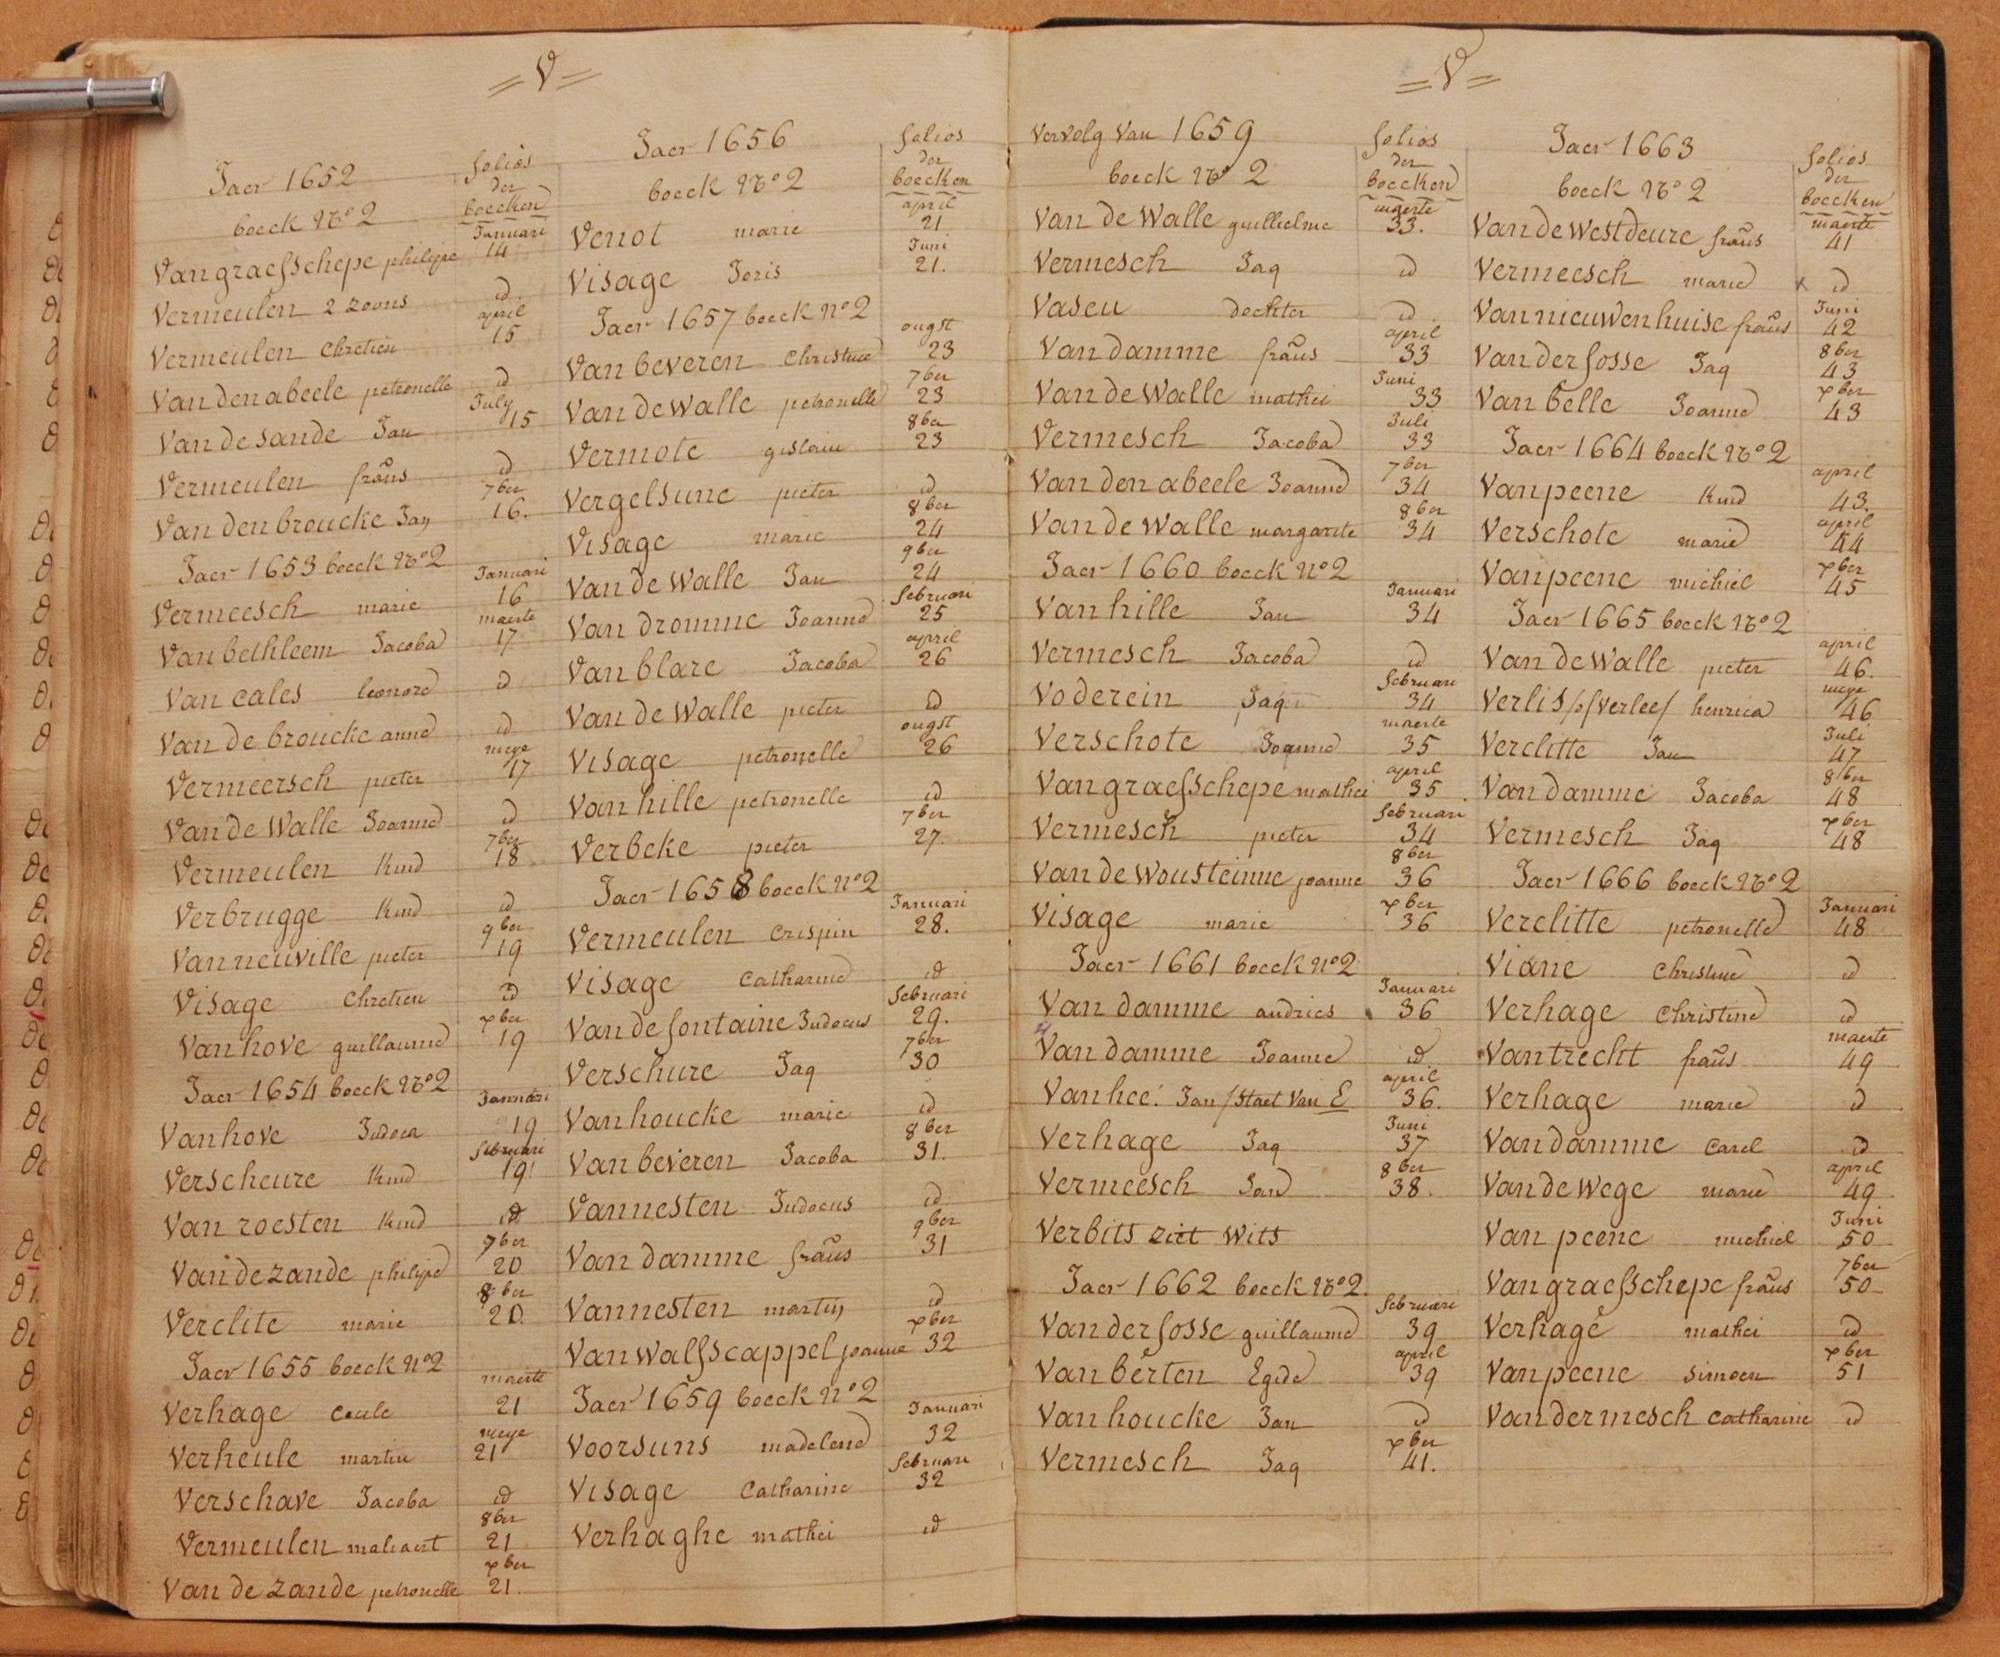 = V =
Jaer 1652
folios
der
boecken
boeck No 2
Januari
Van graefschepe philipe 14
Vermeulen 2 zoons id
april
Vermeulen Chretien 15
Van den abeele petronelle id
July
Van de sande Jan 15
Vermeulen frans id
7ber
Van den broucke Jan 16.
Jaer 1653 boeck No 2
Januari
Vermeesch marie 16
maerte
Van bethleem Jacoba 17
Van cales leonore id
Van de broucke anne id
meye
Vermeersch pieter 17
Van de Walle Joanne id
7ber
Vermeulen Kind 18
Verbrugge Kind id
9ber
Van neuville pieter 19
Visage Chretien id
xber
Van hove guillaume 19
Jaer 1654 boeck No 2
Januari
Van hove Judoca 19
februari
Verscheure Kind 19
Van roesten Kind id
7ber
Van de zande philipe 20
8ber
Verclite marie 20
Jaer 1655 boeck No 2
maerte
Verhage Cecile 21
meye
Verheule martin 21
Verschave Jacoba id
8ber
Vermeulen maliaert 21
xber
Van de zande petronelle 21.
Jaer 1656
folios
der
boecken
boeck No 2
april
Venot marie 21
Juni
Visage Joris 21.
Jaer 1657 boeck No 2
ougst
Van beveren Christine 23
7ber
Van de Walle petronelle 23
8ber
Vermote gislain 23
Vergelsune pieter id
8ber
Visage marie 24
9ber
Van de Walle Jan 24
februari
Van dromme Joanne 25
april
Van blare Jacoba 26
Van de Walle pieter id
ougst
Visage petronelle 26
Van hille petronelle id
7ber
Verbeke pieter 27.
Jaer 1658 boeck No 2
Januari
Vermeulen Crispin 28.
Visage Catharine id
februari
Van de fontaine Judocus 29.
7ber
Verschure Jaq 30
Van houcke marie id
8ber
Van beveren Jacoba 31.
Vannesten Judocus id
9ber
Van damme frans 31
Vannesten martin id
xber
Van walfscappel joanne 32
Jaer 1659 boeck No 2
Januari
Voorsuns madelene 32
februari
Visage Catharine 32
Verhaghe mathei id
= V =
Vervolg Van 1659
folios
der
boecken
boeck No 2
maerte
Van de Walle guillielme 33.
Vermesch Jaq id
Vaseu dochter id
april
Van damme frans 33
Juni
Van de Walle mathei 33
Juli
Vermesch Jacoba 33
7ber
Van den abeele Joanne 34
8ber
Van de Walle margarite 34
Jaer 1660 boeck No 2
Januari
Van hille Jan 34
Vermesch Jacoba id
februari
Voderein Jaq 34
maerte
Verschote Joanne 35
april
Van graefschepe mathei 35
februari
Vermesch pieter 34
8ber
Van de Wousteinne joanne 36
xber
Visage marie 36
Jaer 1661 boeck No 2
Januari
Van damme andries 36
Van damme Joanne id
april
Van hee. Jan / Staet Van E 36.
Juni
Verhage Jaq 37
8ber
Vermeesch Jan 38.
Verbits ziet Wits
Jaer 1662 boeck No 2
februari
Van der fosse guillaume 39
april
Van berten Egide 39
Van houcke Jan id
xber
Vermesch Jaq 41.
Jaer 1663
folios
der
boecken
boeck No 2
maerte
Van de Westdeure frans 41
Vermeesch marie x id
Juni
Van nieuwenhuise frans 42
8ber
Van der fosse Jaq 43
xber
Van belle Joanne 43
Jaer 1664 boeck No 2
april
Van peene Kind 43.
april
Verschote marie 44
xber
Van peene michiel 45
Jaer 1665 boeck No 2
april
Van de Walle pieter 46.
meye
Verlis /of Verlee/ henrica 46
Juli
Verclitte Jan 47
8ber
Van damme Jacoba 48
xber
Vermesch Jaq 48
Jaer 1666 boeck No 2
Januari
Verclitte petronelle 48
Viane Christine id
Verhage Christine id
maerte
Van trecht frans 49
Verhage marie id
Van damme Carel id
april
Van de Wege marie 49
Juni
Van peene michiel 50
7ber
Van graefschepe frans 50
Verhage mathei id
xber
Van peene Simoen 51
Van der mesch Catharine id